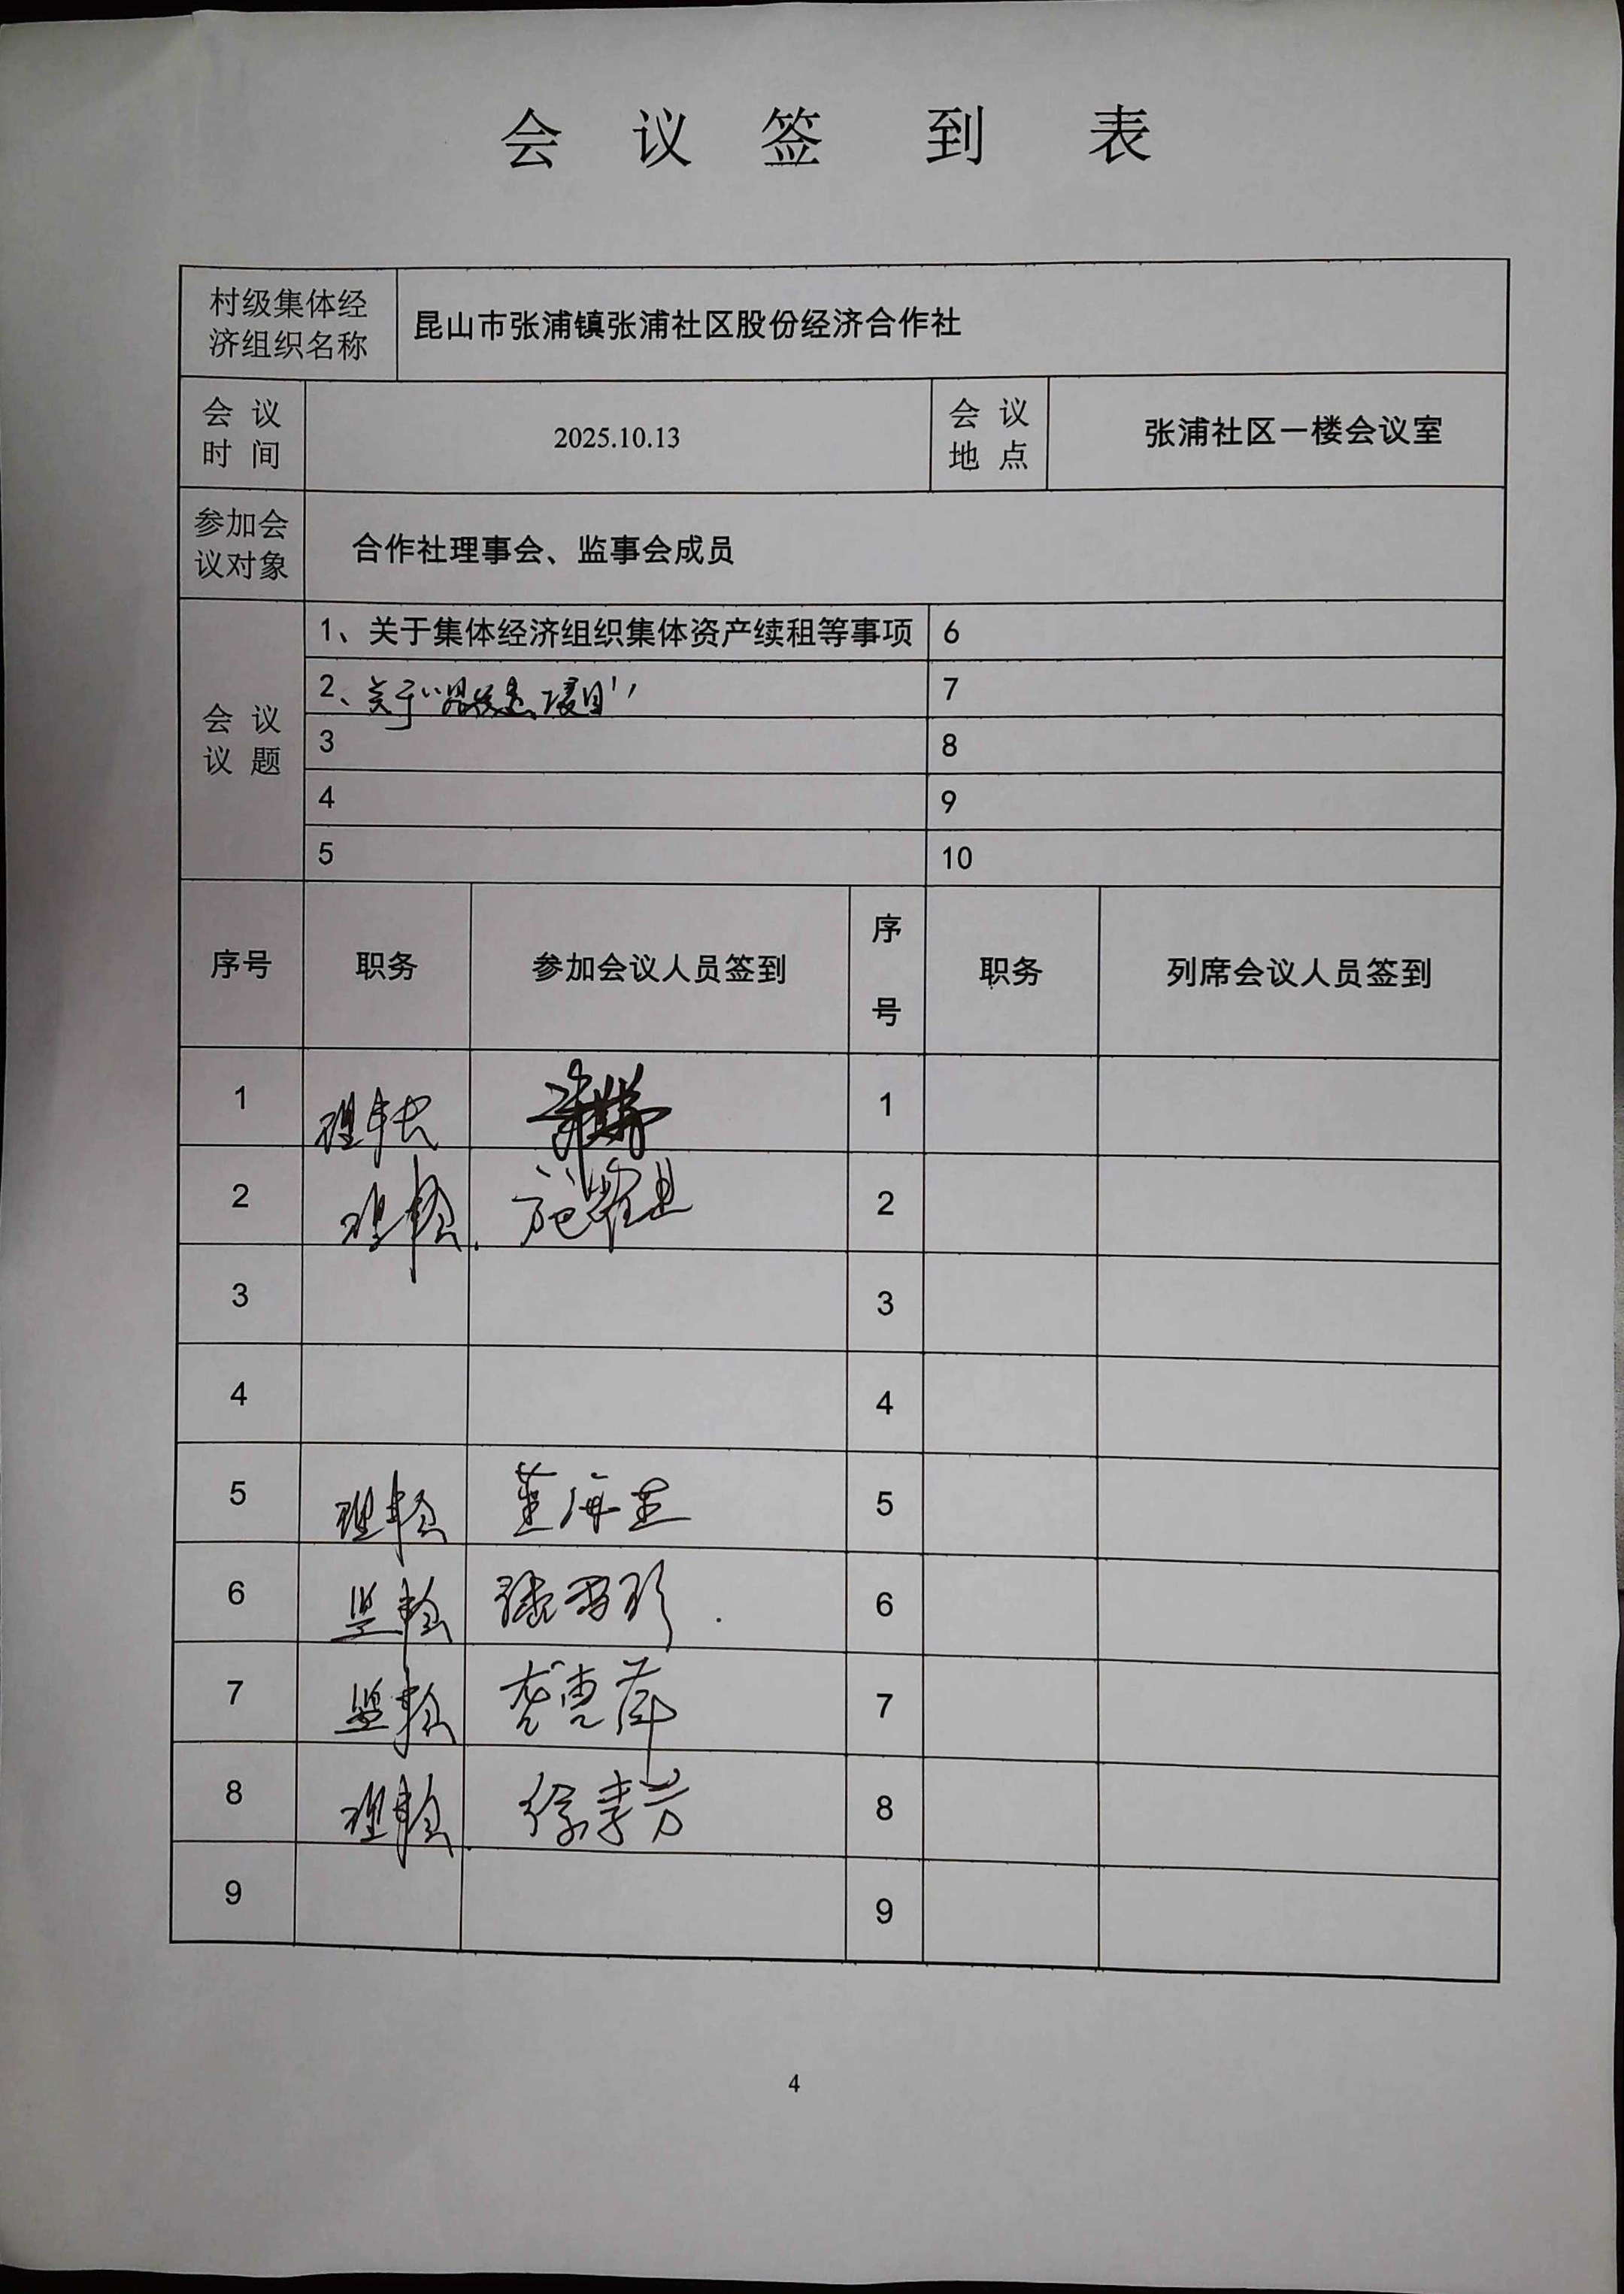 会议签到表
村级集体经
济组织名称
昆山市张浦镇张浦社区股份经济合作社
会 议
时 间
2025.10.13
会 议
地 点
张浦社区一楼会议室
参加会
议对象
合作社理事会、监事会成员
会 议
议 题
1、关于集体经济组织集体资产续租等事项
6
2、关于“ 项目”
7
3
8
4
9
5
10
序号
职务
参加会议人员签到
序
号
职务
列席会议人员签到
1
理事长
1
2
理事会
2
3
3
4
4
5
理事会
董海兰
5
6
监事会
6
7
监事会
龚惠萍
7
8
理事会
徐李芳
8
9
9
4